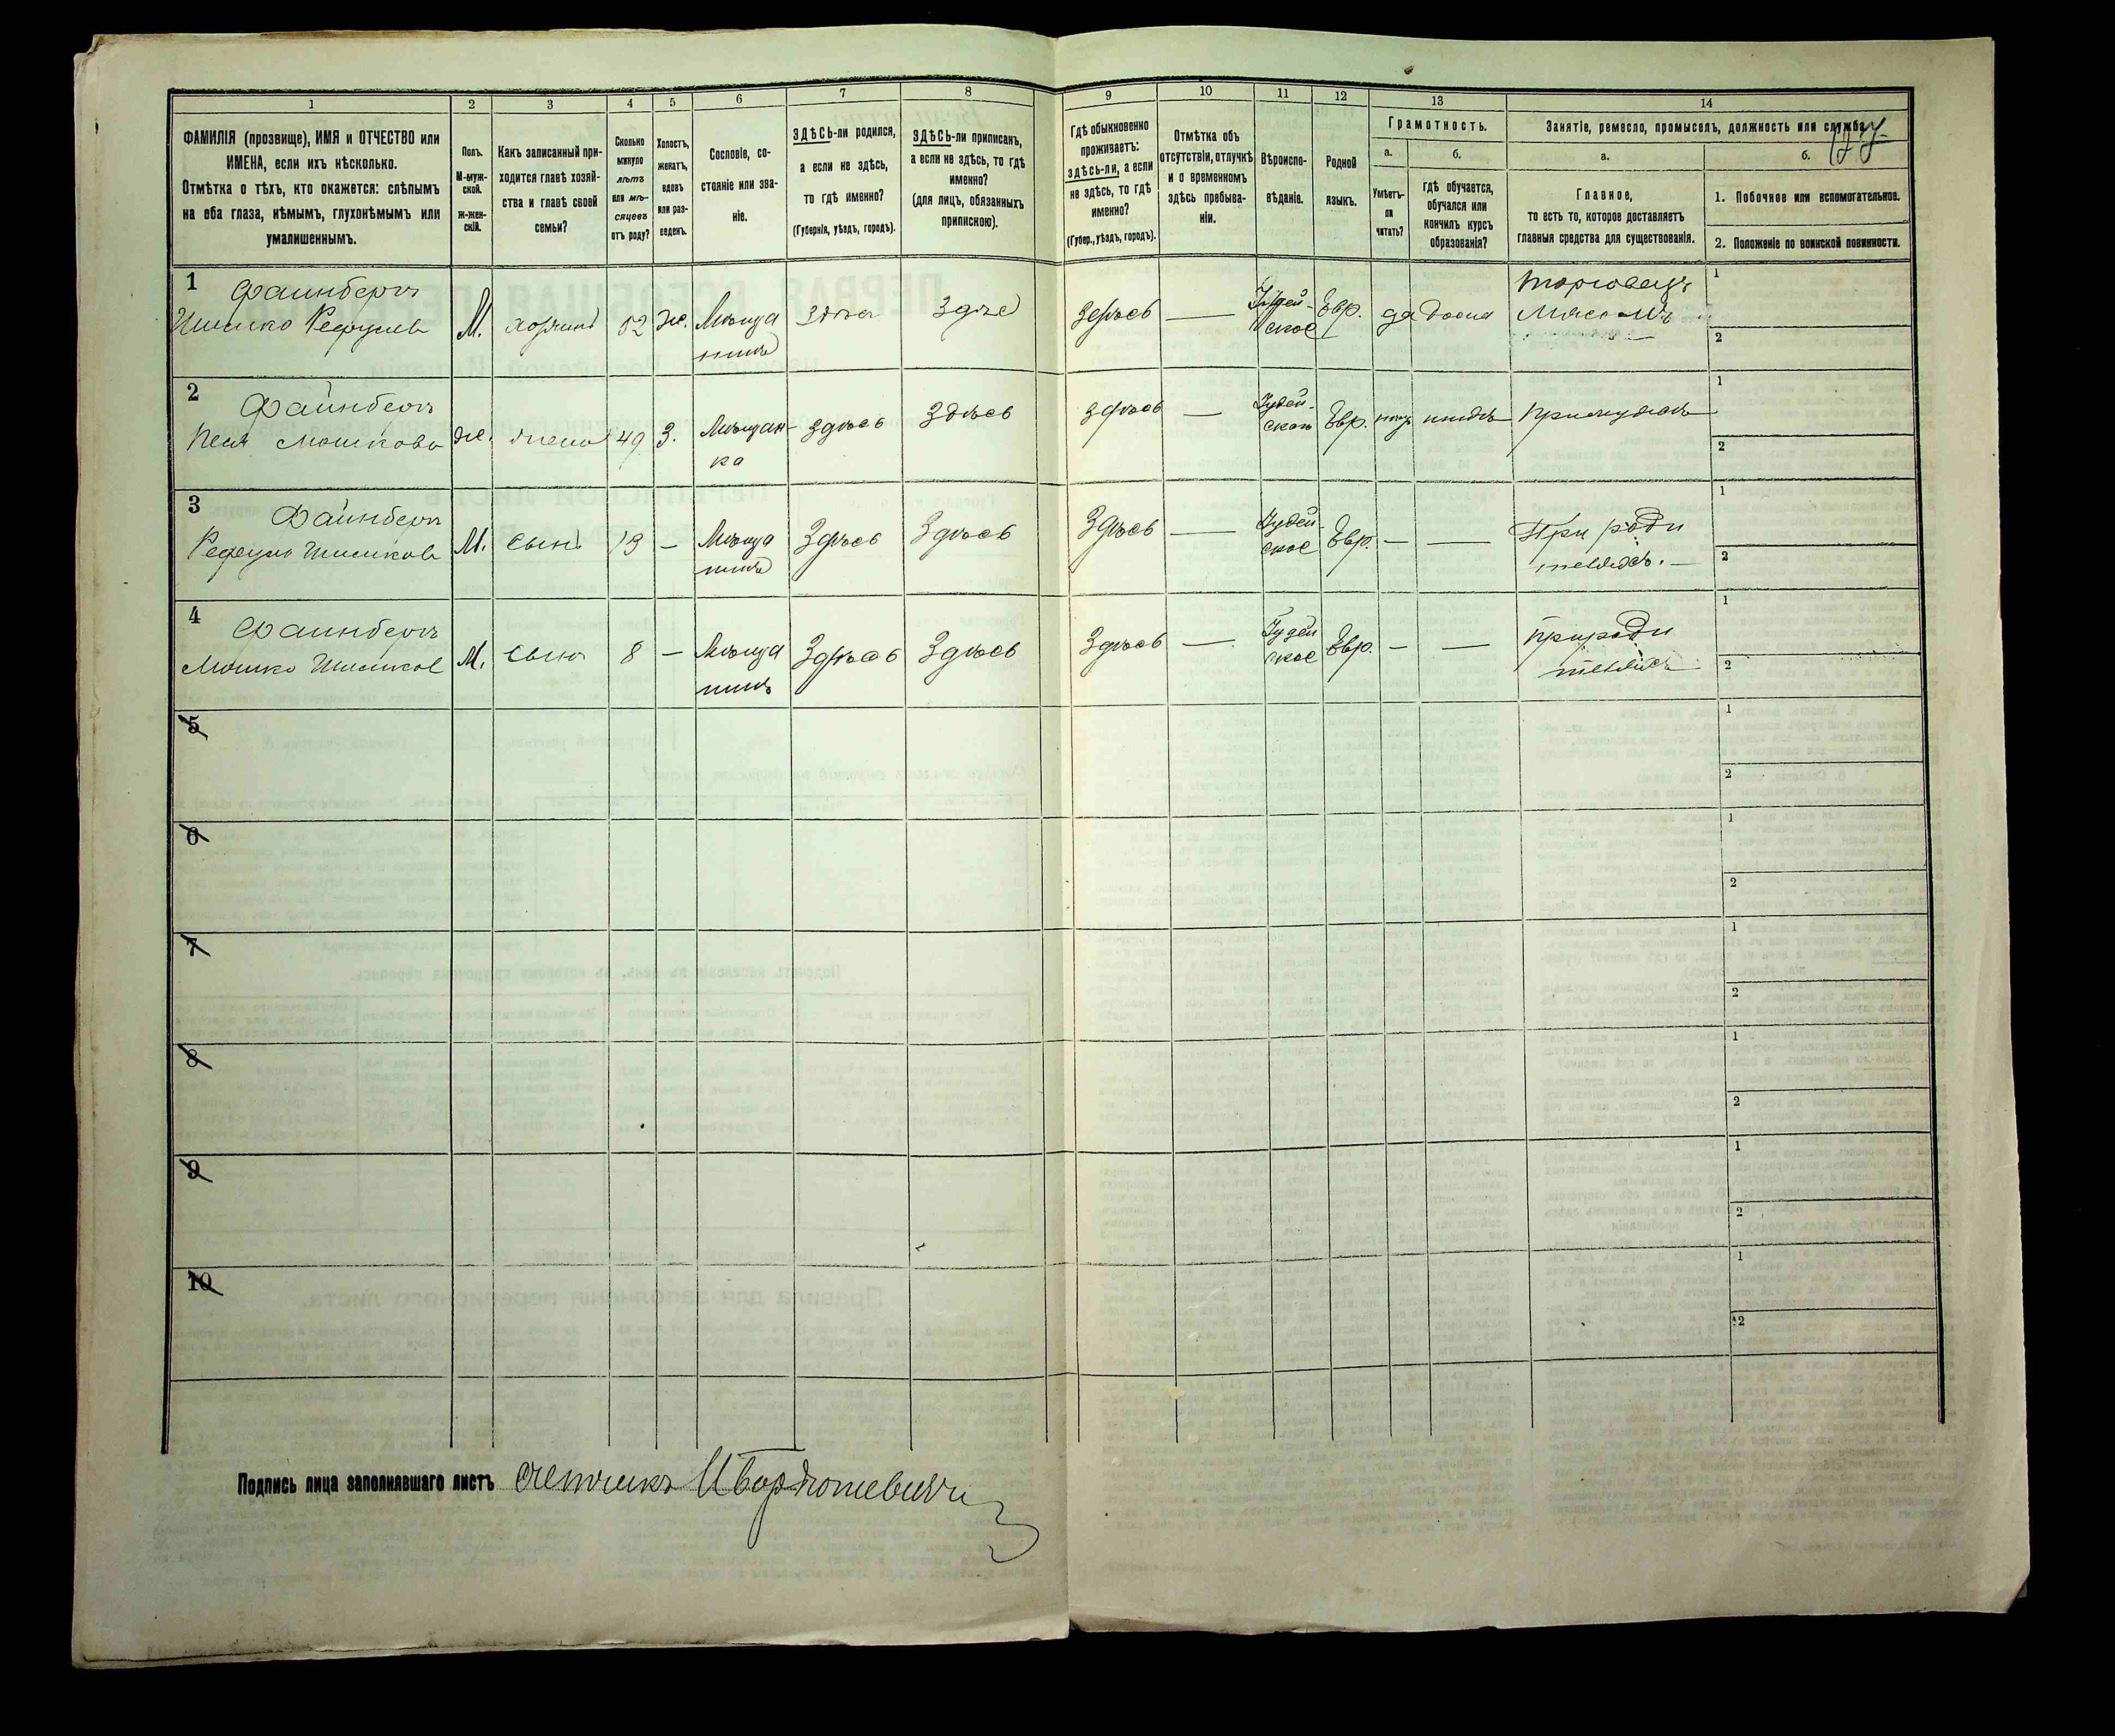 1 2 3 4 5 6 7 8 9 10 11 12 13 14
ФАМИЛІЯ (прозвище), ИМЯ и ОТЧЕСТВО или
ИМЕНА, если ихъ нѣсколько.
Отмѣтка о тѣхъ, кто окажется: слѣпымъ
на оба глаза, нѣмымъ, глухонѣмымъ или
умалишеннымъ.
Полъ.
М-муж-
ской.
ж-жен-
скій.
Какъ записанный при-
ходится главѣ хозяй-
ства и главѣ своей
семьи?
Сколько
минуло
лѣтъ
или мѣ-
сяцевъ
отъ роду?
Холостъ,
женатъ,
вдовъ
или раз-
веденъ.
Сословіе, со-
стояніе или зва-
ніе.
ЗДѢСЬ-ли родился,
а если не здѣсь,
то гдѣ именно?
(Губернія, уѣздъ, городъ).
ЗДѢСЬ-ли приписанъ,
а если не здѣсь, то гдѣ
именно?
(для лицъ, обязанныхъ
припискою).
Гдѣ обыкновенно
проживаетъ:
здѣсь-ли, а если
не здѣсь, то гдѣ
именно?
(Губер., уѣздъ, городъ).
Отмѣтка объ
отсутствіи, отлучкѣ
и о временномъ
здѣсь пребыва-
ніи.
Вѣроиспо-
вѣданіе.
Родной
языкъ.
Грамотность.
а.
Умѣетъ-
ли
читать?
б.
гдѣ обучается,
обучался или
кончилъ курсъ
образованія?
Занятіе, ремесло, промыселъ, должность или служба.
а.
Главное,
то есть то, которое доставляетъ
главныя средства для существованія.
б.
1. Побочное или вспомогательное.
2. Положеніе по воинской повинности.
1 Файнбергъ
М. 52 Же. Мѣща Здѣсь Здѣсь Здѣсь — Іудей- Евр. да дома Торговецъ 1
нинъ ское Мясомъ 2
2 Файнбергъ
Песя Мошкова же. жена 49 З. Мѣщан- Здѣсь Здѣсь Здѣсь — Іудей- Евр. при мужѣ 1
ка ское 2
3 Файнбергъ
Шимковъ М. сынъ 19 — Мѣща Здѣсь Здѣсь Здѣсь — Іудей- Евр. — — При роди 1
нинъ ское теляхъ. 2
4 Файнбергъ
Мошко Шимковъ М. сынъ 8 — Мѣща Здѣсь Здѣсь Здѣсь — Іудей Евр. — — При роди 1
нинъ ское теляхъ 2
5 1
2
6 1
2
7 1
2
8 1
2
9 1
2
10 1
2
Подпись лица заполнявшаго листъ счетчикъ